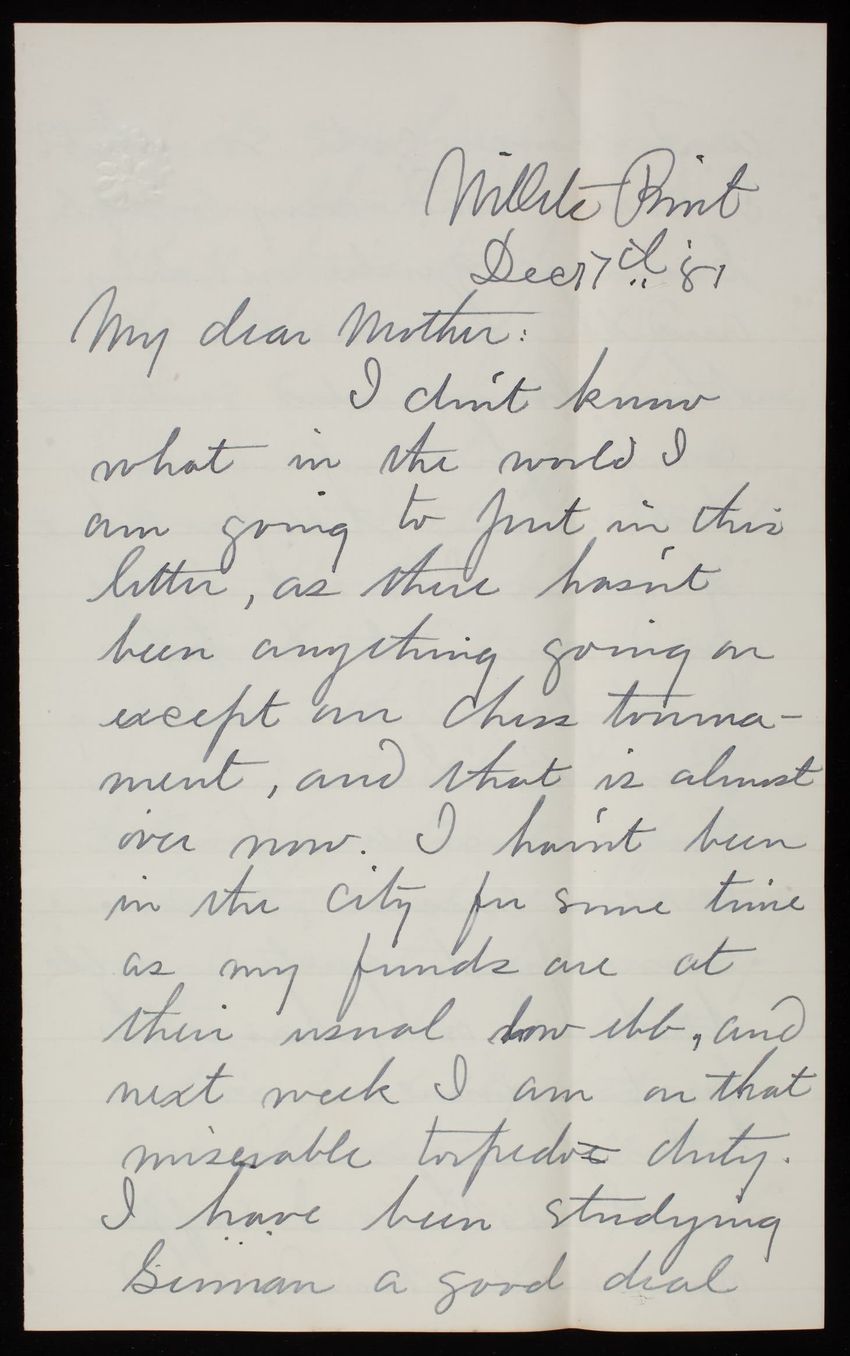 Willets Point
Dec 17th '81
My dear Mother:
I don't know
what in the world I
am going to put in this
letter, as there hasn't
been anything going on
except our chess tourna-
ment, and that is almost
over now. I havn't been
in the city for some time
as my funds are at
their usual low ebb, and
next week I am on that
miserable torpedo duty.
I have been studying
German a good deal